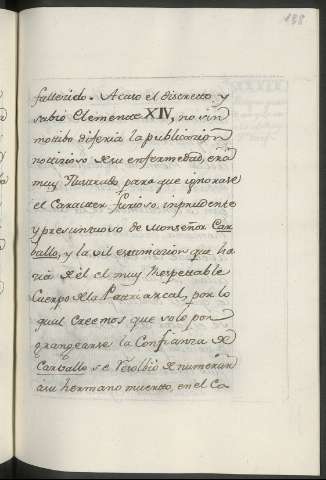 138
fallecido. Acaso el discreto y
sabio Clemente XIV, no sin
motibo diferia la publicacion
noticioso de su enfermedad, era
muy Ilustrado para que ignorase
el Caracter furioso, inprudente
y presuntuoso de Monseñor Car
ballo, y la vil estimacion que ha
cia de él el muy Respettable
Cuerpo de la Patriarcal, por lo
qual Creemos que solo por
grangearse la Confianza de
Carballo se resolbió de numerar
á su hermano muerto, en el Ca